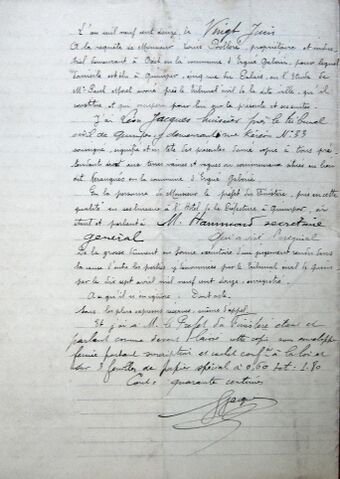 L'an mil neuf cent douze, le Vingt Juin
A la requête de Monsieur Louis Bolloré, propriétaire et indus-
triel demeurant à Odet en la commune d'Ergué Gabéric, pour lequel
domicile est élu à Quimper, cinq rue du Palais, en l'Etude de
Me Paul avoué près le Tribunal civil de la dite ville, qu'il
constitue et qui occupera pour lui sur la présente et ses suites
J'ai Léon Jacques huissier près le tribunal
civil de Quimper, y demeurant rue Kéréon No 23
soussigné, signifié et en tête des présentes donné copie à tous pré-
tendants droit aux terres vaines et vagues ou communaux situés au lieu
dit en la commune d'Ergué Gabéric
En la personne de Monsieur le préfet du Finistère, pris en cette
qualité en ses bureaux à l'Hôtel de la Préfecture à Quimper, où
étant et parlant à M. Hammond secrétaire
général qui a visé l'original
De la grosse dûment en forme exécutoire d'un jugement rendu dans
la cause d'entre les parties y dénommées par le Tribunal civil de Quimper
le dix sept avril mil neuf cent douze, enregistré
A ce qu'il n'en ignore : Dont acte
Sous les plus expresses réserves, même d'appel
Et j'ai à M. le Préfet du Finistère étant et
parlant comme devant laissé cette copie sous enveloppe
fermée portant suscription et cachet conft à la loi et
sur 3 feuilles de papier spécial à 0,60 soit : 1,80
Coût : quarante centimes